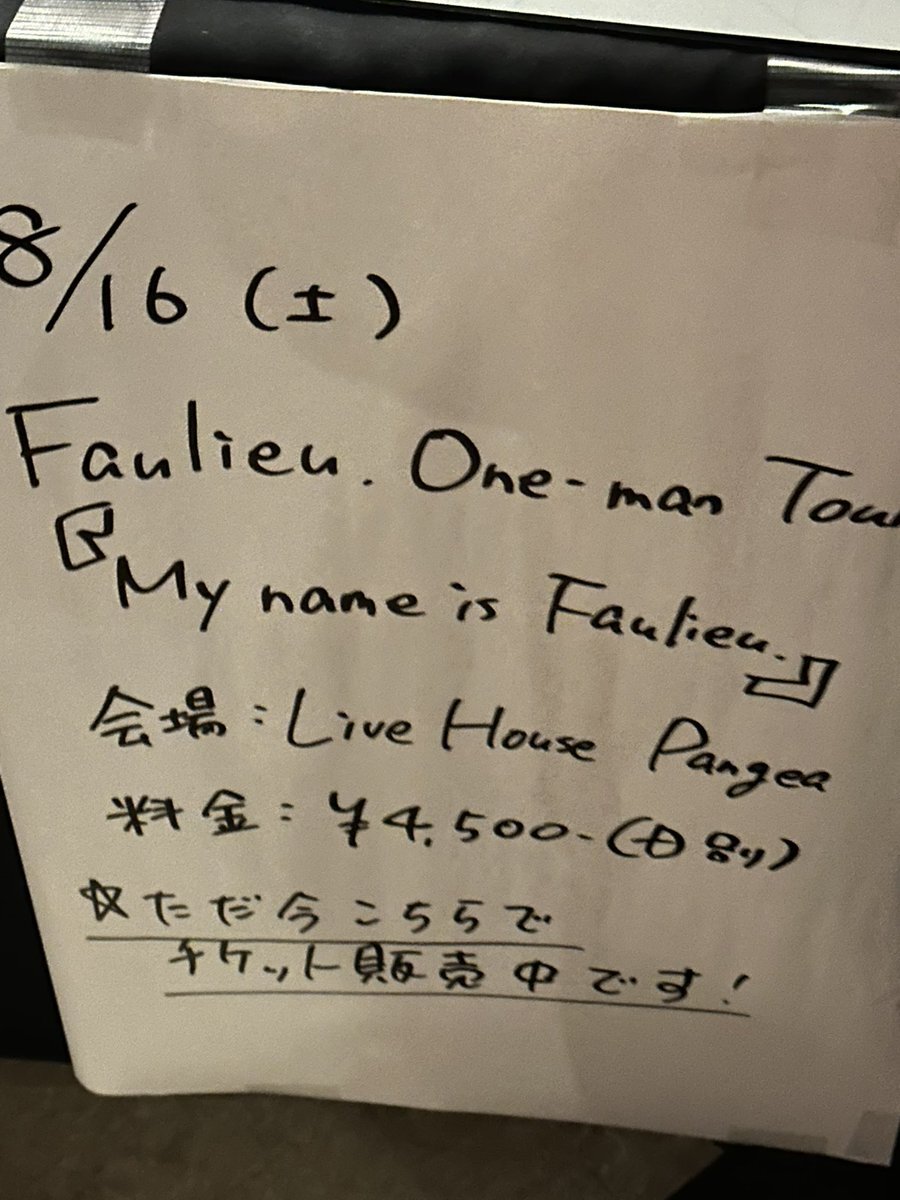 8/16 (土)
Faulieu. One-man Tour
『My name is Faulieu.』
会場:Live House Pangea
料金:¥4,500-(D別)
☆ただ今こちらで
チケット販売中です!